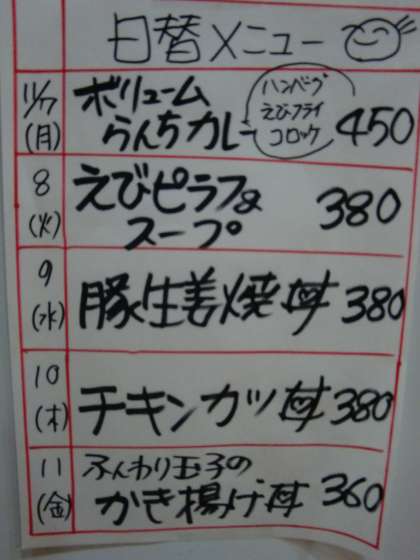 日替メニュー
11/7
(月)
ボリューム
らんちカレー
ハンバーグ
えびフライ
コロッケ
450
8
(火)
えびピラフ&
スープ
380
9
(水)
豚生姜焼丼 380
10
(木)
チキンカツ丼 380
11
(金)
ふんわり玉子の
かき揚げ丼 360